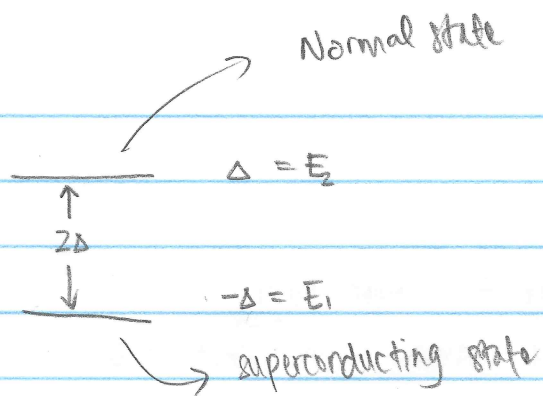 Normal state
Δ = E₂
2Δ
-Δ = E₁
superconducting state